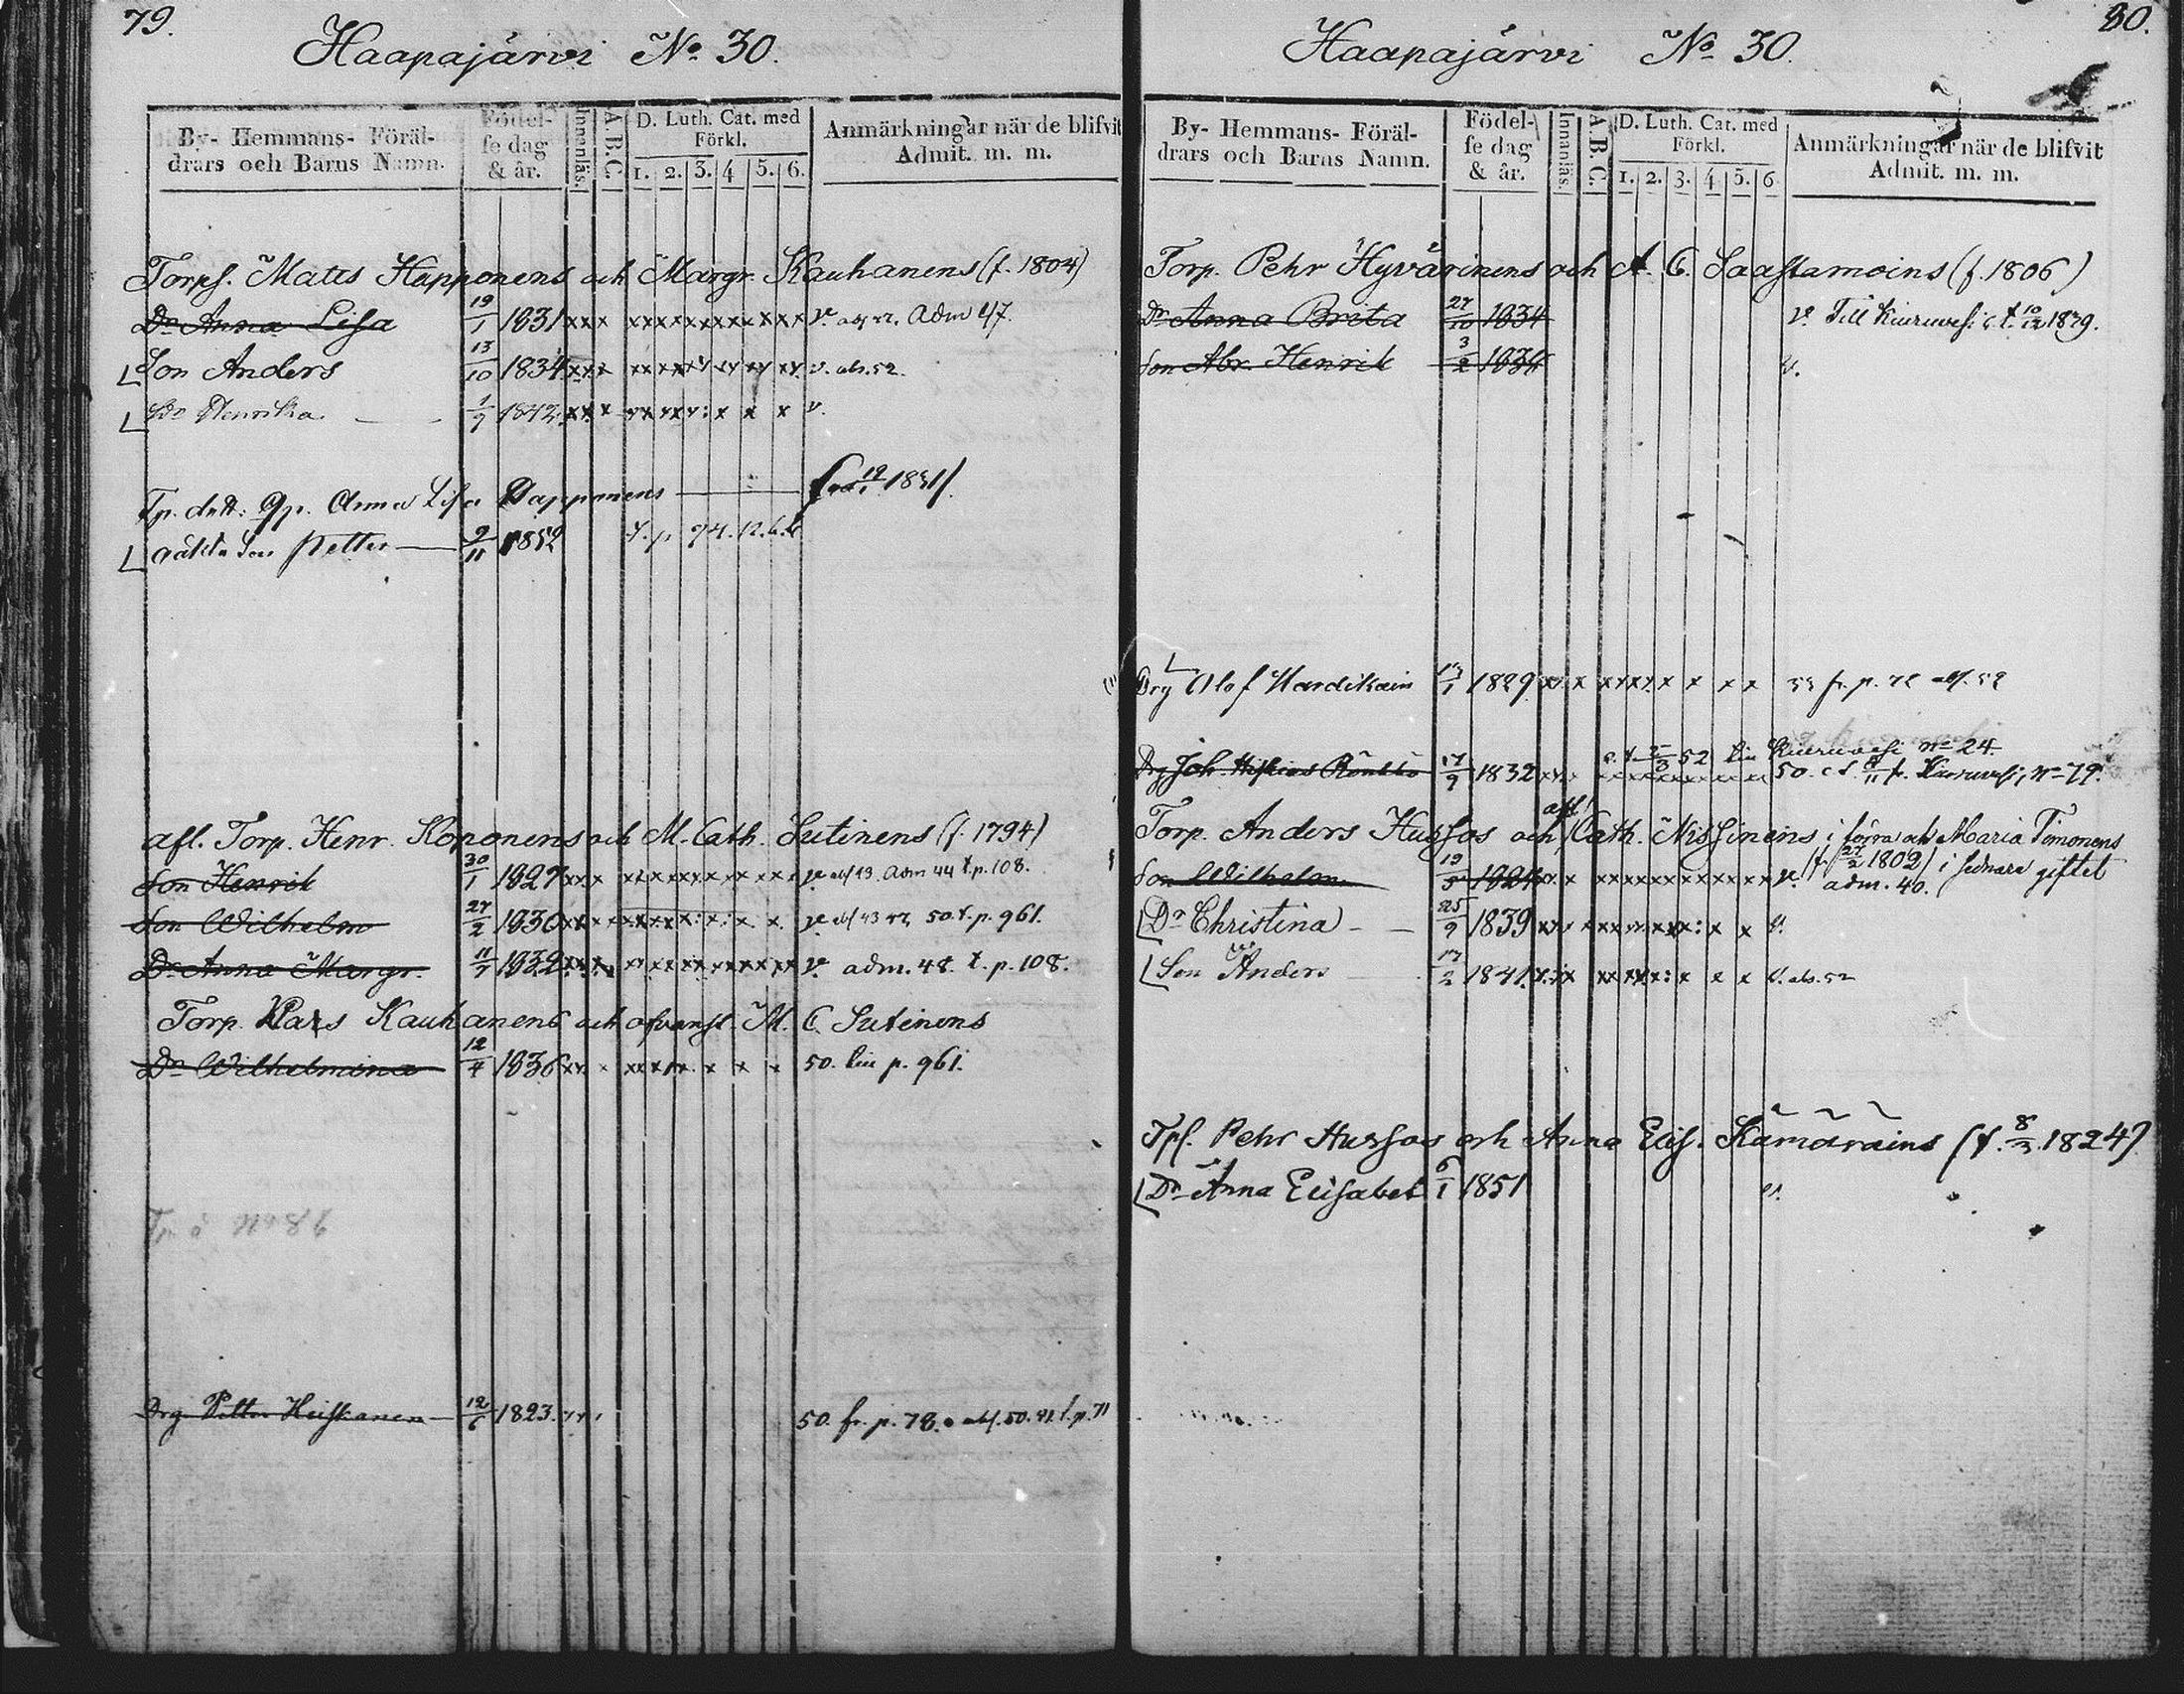 79.
Haapajärvi No 30.
By- Hemmans- Föräl-
drars och Barns Namn.
Födel-
se dag
& år.
Innanläs.
A.B.C.
D. Luth. Cat. med
Förkl.
1. 2. 3. 4 5. 6.
Anmärkningar när de blifvit
Admit. m. m.
Torps. Matts Happonens och Margr. Kauhanens (f. 1804)
Dr Anna Lisa 19/1 1831 xxx xxxxxxxxxxx v. Adm 47.
Son Anders 13/10 1834 v. abs. 52.
Dr Henrika 1/7 1842 v.
Tp. dott. Qp. Anna Lisa Happonens 19/1 1831
oäkta Son Petter 9/11 1852 p 74.
afl. Torp. Henr. Koponens och M. Cath. Sutinens (f. 1794)
Son Henrik 30/1 1827 v. Adm 44 t.p. 108.
Son Wilhelm 27/2 1830 v. 50. t. p. 961.
Dr Anna Margr. 11/7 1832 v. adm. 48. t. p. 108.
Torp. Lars Kauhanens och ofvanst. M. C. Sutinens
Dr Wilhelmina 12/4 1836 50. p. 961.
Tp. å No 86
Drg Petter Heiskanen 12/6 1823. 50. fr. p. 78. abs. 50. t. p. 71
80.
Haapajärvi No 30.
By- Hemmans- Föräl-
drars och Barns Namn.
Födel-
se dag
& år.
Innanläs.
A.B.C.
D. Luth. Cat. med
Förkl.
1. 2. 3. 4 5. 6
Anmärkningar när de blifvit
Admit. m. m.
Torp. Pehr Hyvärinens och A. C. Saastamoins (f. 1806)
Dr Anna Brita 27/10 1834 v. Till Kiuruvesi 10/12 1839.
Son Abr. Henrik 3/2 1836 v.
Drg Olof Kardikain 13/1 1829 fr. p. 72 abs. 52
52 Kiuruvesi no 24.
Drg Joh. 17/9 1832 50. fr. Kiuruvesi, no 79.
Torp. Anders Hussos och afl. Cath. Nissineins i förra och Maria Timonens
(f. 27/2 1802) i sednare giftet
Son Wilhelm 19/5 1824 v. adm. 40.
Dr Christina 25/9 1839 v.
Son Anders 17/2 1841 v. abs. 52
Tpf. Pehr Hussos och Anna Elis. Kämäräins (f. 8/3 1824)
Dr Anna Elisabet 6/1 1851 v.